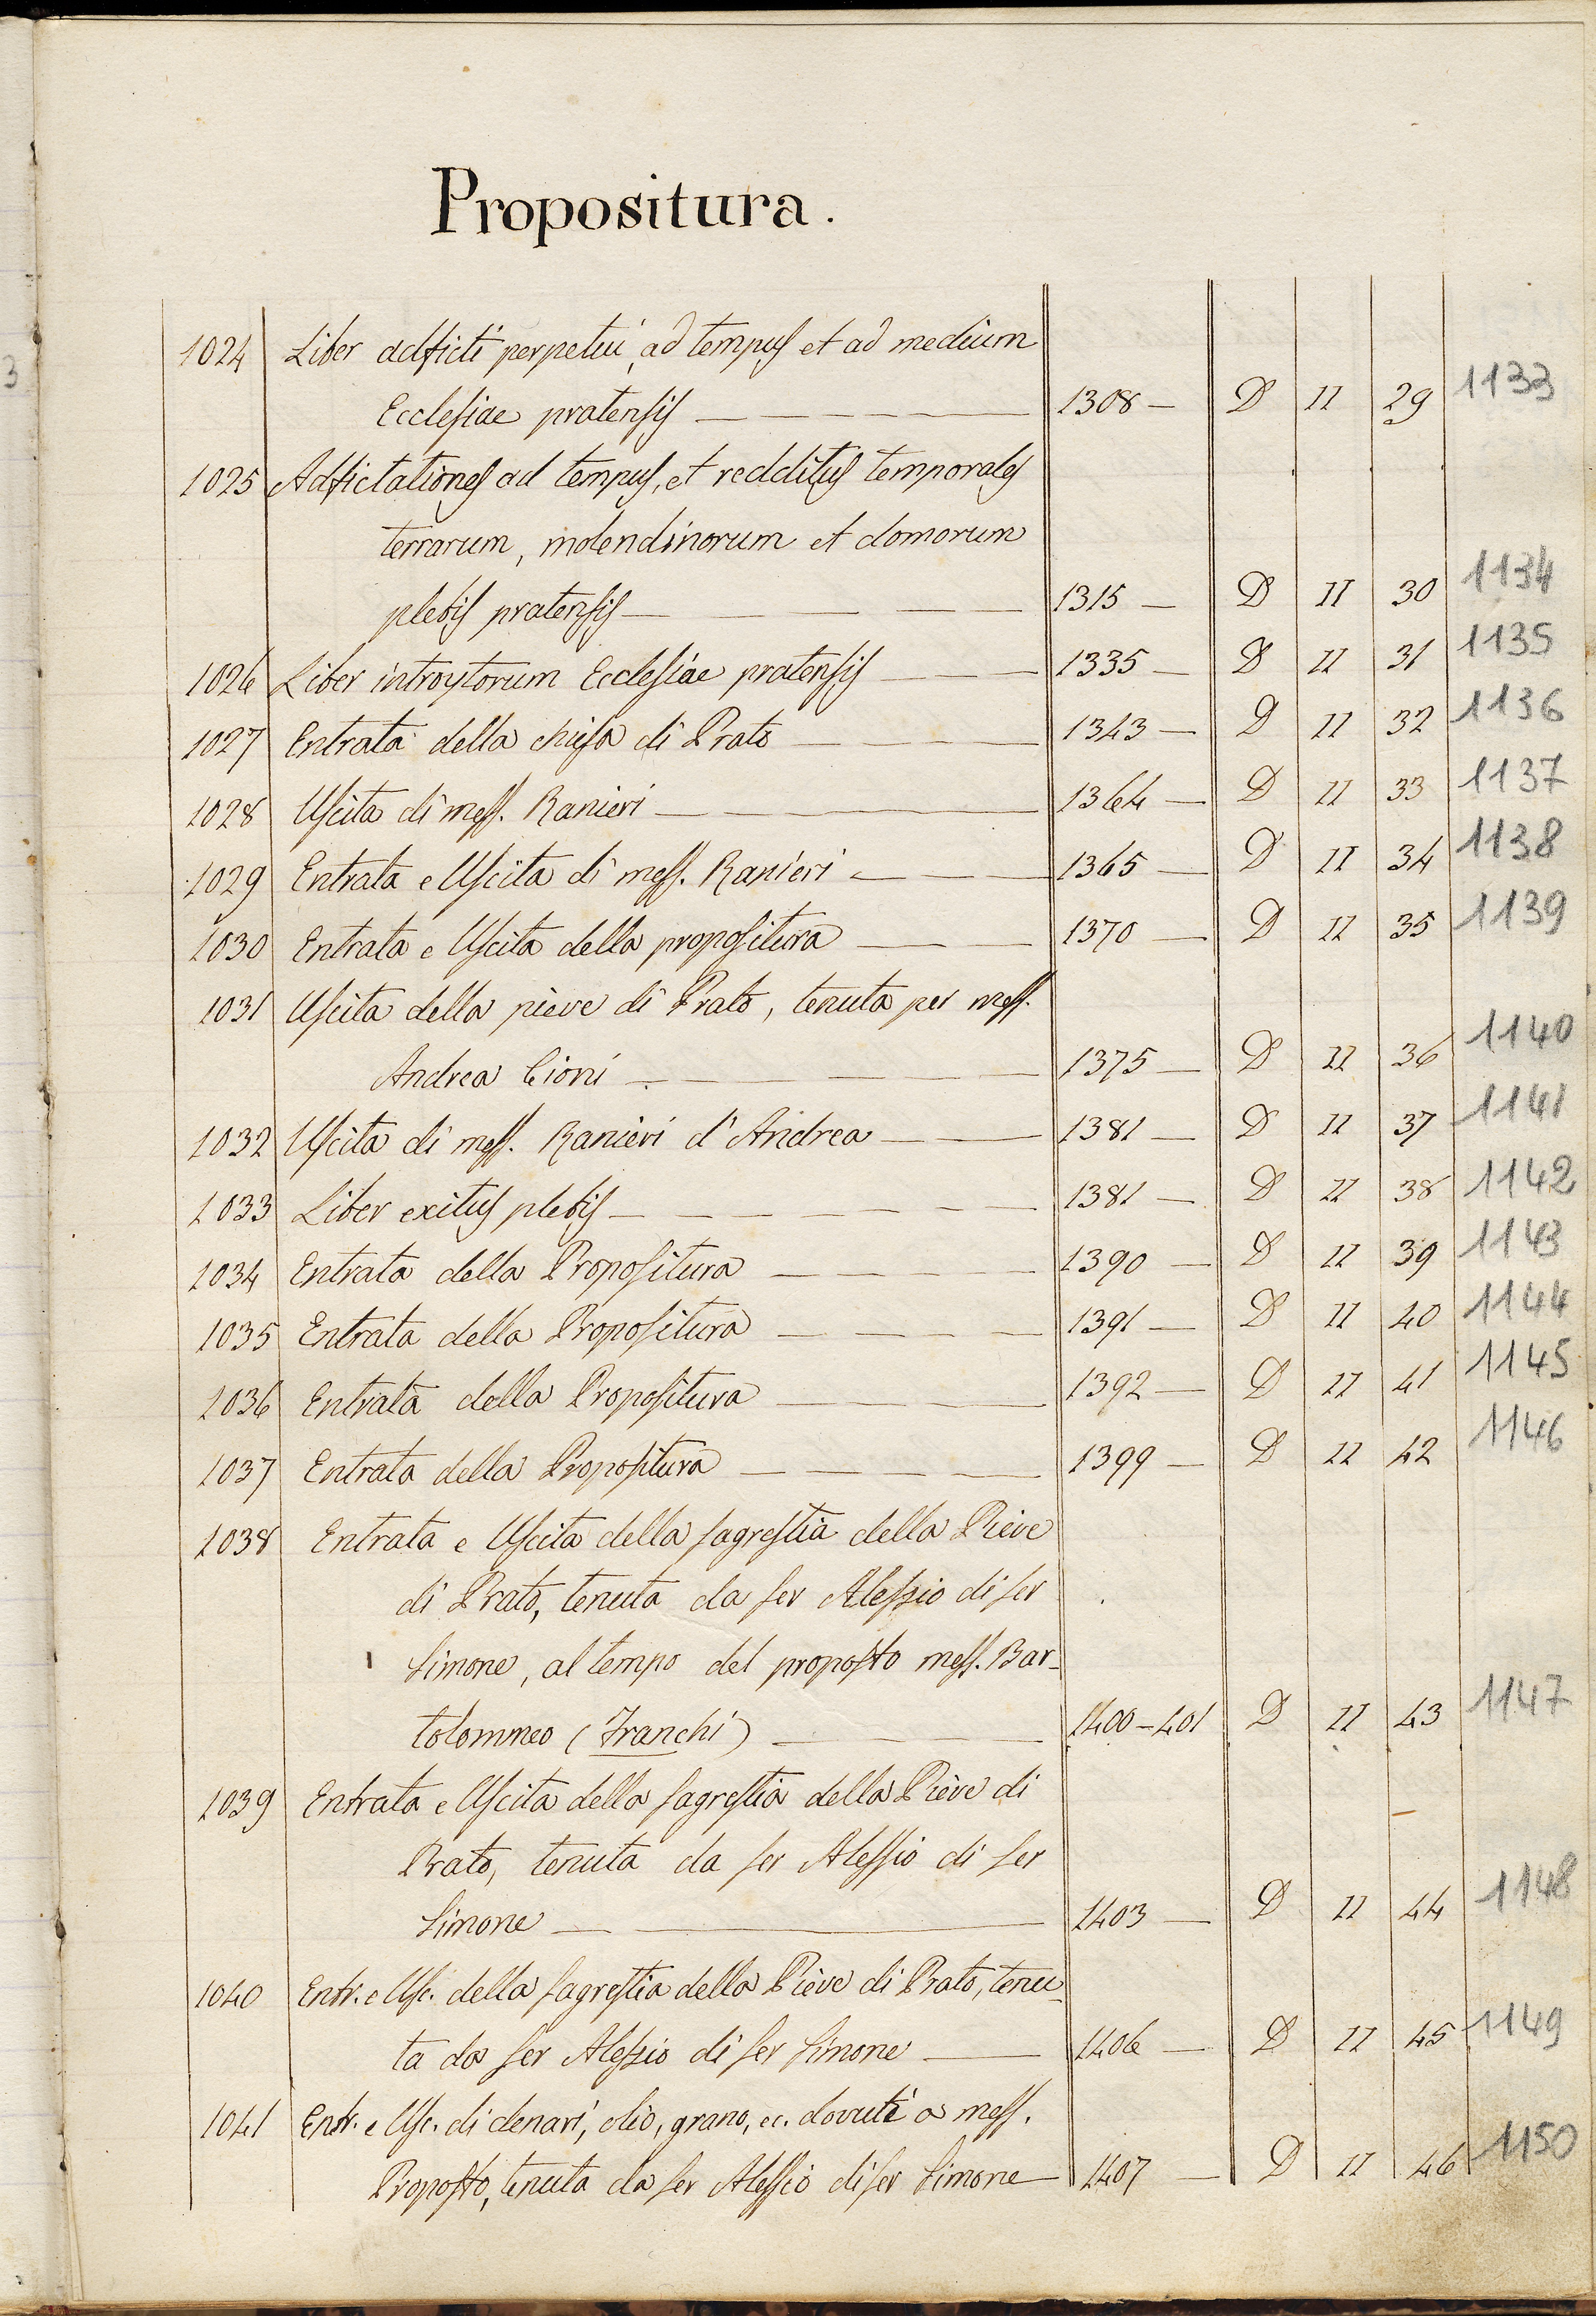 3
Propositura.
1024 Liber adficti perpetui, ad tempus et ad medium
Ecclesiae pratensis — 1308 — D II 29 1133
1025 Adfictationes ad tempus, et redditus temporales
terrarum, molendinorum et domorum
plebis pratensis — 1315 — D II 30 1134
1026 Liber introytorum Ecclesiae pratensis — 1335 — D II 31 1135
1027 Entrata della chiesa di Prato — 1343 — D II 32 1136
1028 Uscita di mess. Ranieri — 1364 — D II 33 1137
1029 Entrata e Uscita di mess. Ranieri — 1365 — D II 34 1138
1030 Entrata e Uscita della propositura — 1370 — D II 35 1139
1031 Uscita della pieve di Prato, tenuta per mess.
Andrea Cioni — 1375 — D II 36 1140
1032 Uscita di mess. Ranieri d'Andrea — 1381 — D II 37 1141
1033 Liber exitus plebis — 1381 — D II 38 1142
1034 Entrata della Propositura — 1390 — D II 39 1143
1035 Entrata della Propositura — 1391 — D II 40 1144
1036 Entrata della Propositura — 1392 — D II 41 1145
1037 Entrata della Propositura — 1399 — D II 42 1146
1038 Entrata e Uscita della sagrestia della Pieve
di Prato, tenuta da ser Alessio di ser
Simone, al tempo del proposto mess. Bar-
tolommeo (Franchi) — 1400-401 D II 43 1147
1039 Entrata e Uscita della sagrestia della Pieve di
Prato, tenuta da ser Alessio di ser
Simone — 1403 — D II 44 1148
1040 Entr. e Usc. della sagrestia della Pieve di Prato, tenu-
ta da ser Alessio di ser Simone — 1406 — D II 45 1149
1041 Entr. e Usc. di denari, olio, grano, ec. dovuti a mess.
Proposto, tenuta da ser Alessio di ser Simone — 1407 — D II 46 1150